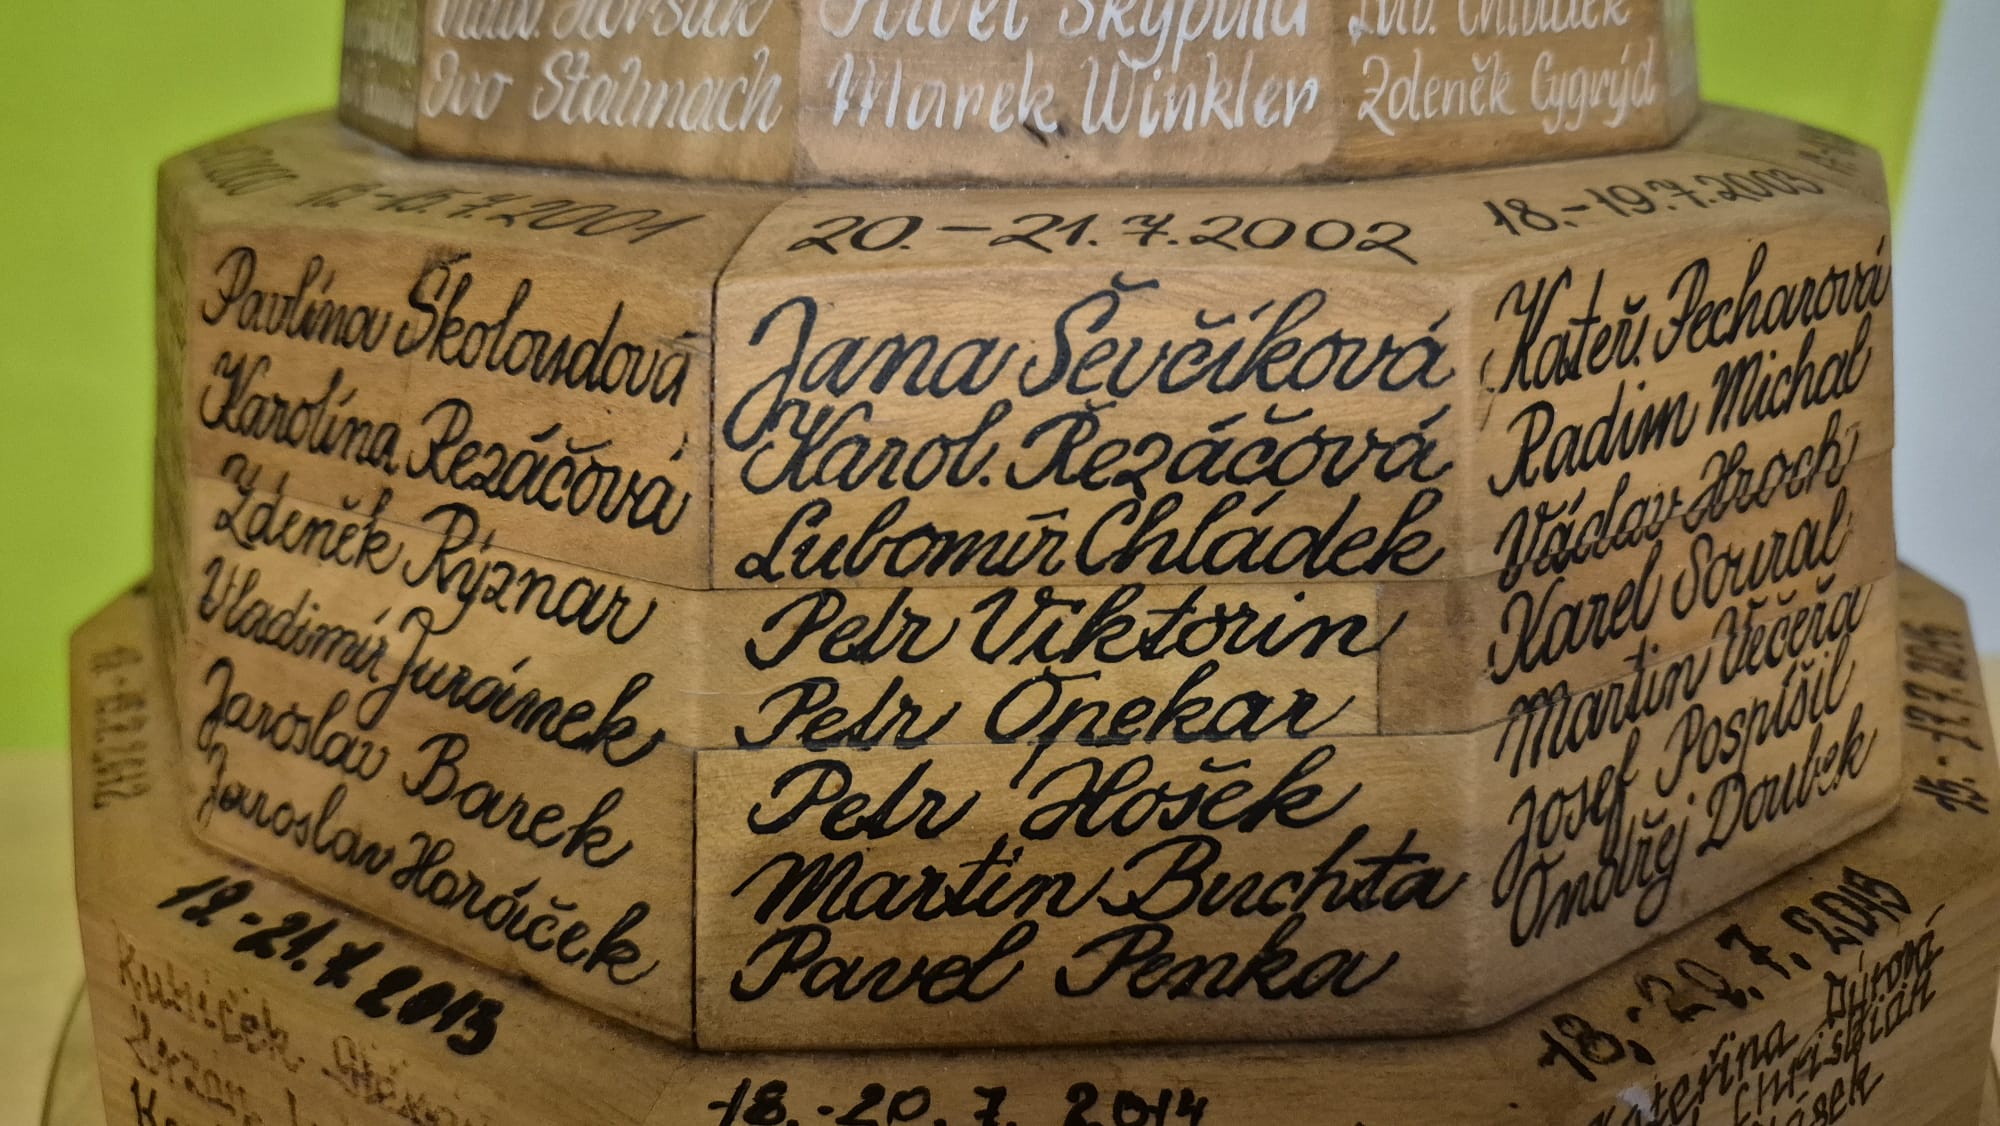 Ivo Stalmach
Marek Winkler
Lub. Chládek
Zdeněk Cygrýd
-15.7.2001
Pavlína Školoudová
Karolína Řezáčová
Zdeněk Rýznar
Vladimír Jurámek
Jaroslav Barek
Jaroslav Horáček
20.-21.7.2002
Jana Ševčíková
Karol. Řezáčová
Lubomír Chládek
Petr Viktorin
Petr Opekar
Petr Hošek
Martin Buchta
Pavel Penka
18.-19.7.2003
Kateř. Pecharová
Radim Michal
Václav Hroch
Karel Soural
Martin Večeřa
Josef Pospíšil
Ondřej Doubek
19.-21.7.2013
Kubíček
18.-20.7.2014
18.-20.7.2015
Kateřina